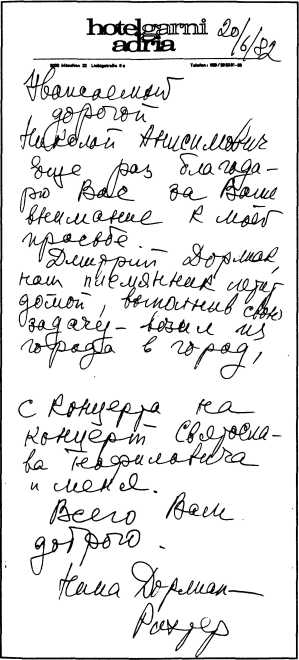 hotelgarni
adria
20/6/82
8000 München 22 Liebigstraße 8a Telefon:
Уважаемый
дорогой
Николай Анисимович
Еще раз благода-
рю Вас за Ваше
внимание к моей
просьбе.
Дмитрий Дорлиак,
наш племянник летит
домой, выполнив свою
задачу – возил из
города в город,
с концерта на
концерт Святосла-
ва Теофиловича
и меня.
Всего Вам
доброго.
Нина Дорлиак–
Рихтер